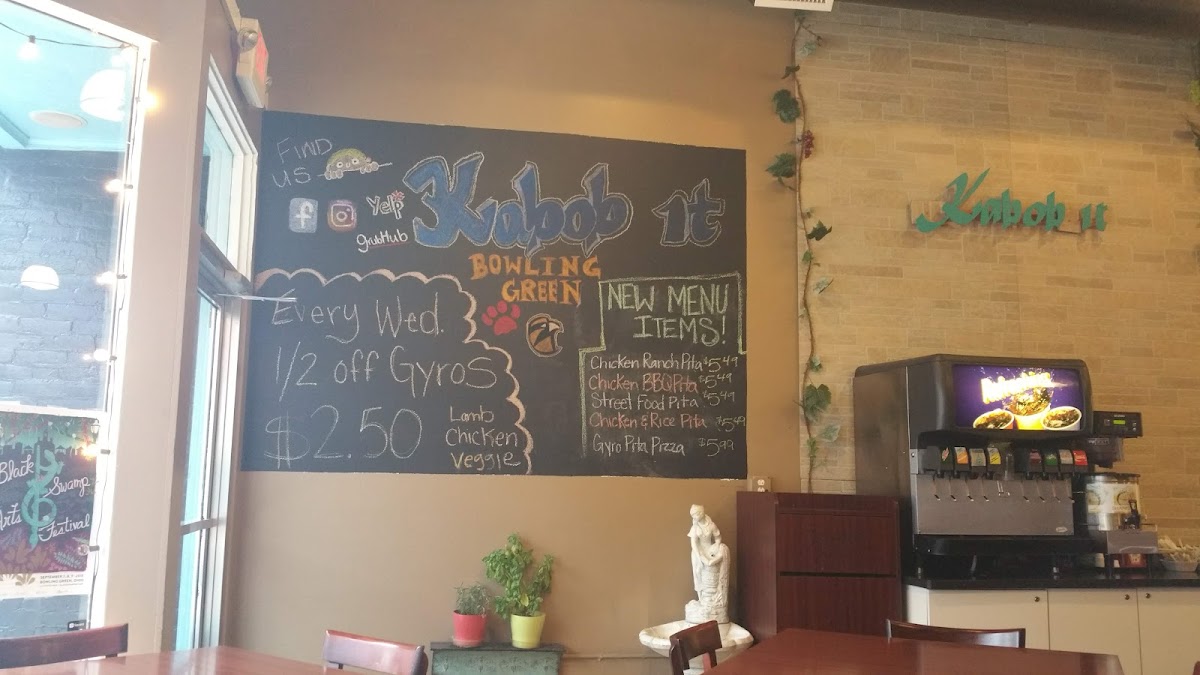 FIND
US
Yelp
grubHub
Kabob it
BOWLING
GREEN
Every Wed.
1/2 off Gyros
$2.50
Lamb
Chicken
Veggie
NEW MENU
ITEMS!
Chicken Ranch Pita $5.49
Chicken BBQ Pita $5.49
Street Food Pita $5.49
Chicken & Rice Pita $5.49
Gyro Pita Pizza $5.99
Kabob it
Black
Swamp
Arts
Festival